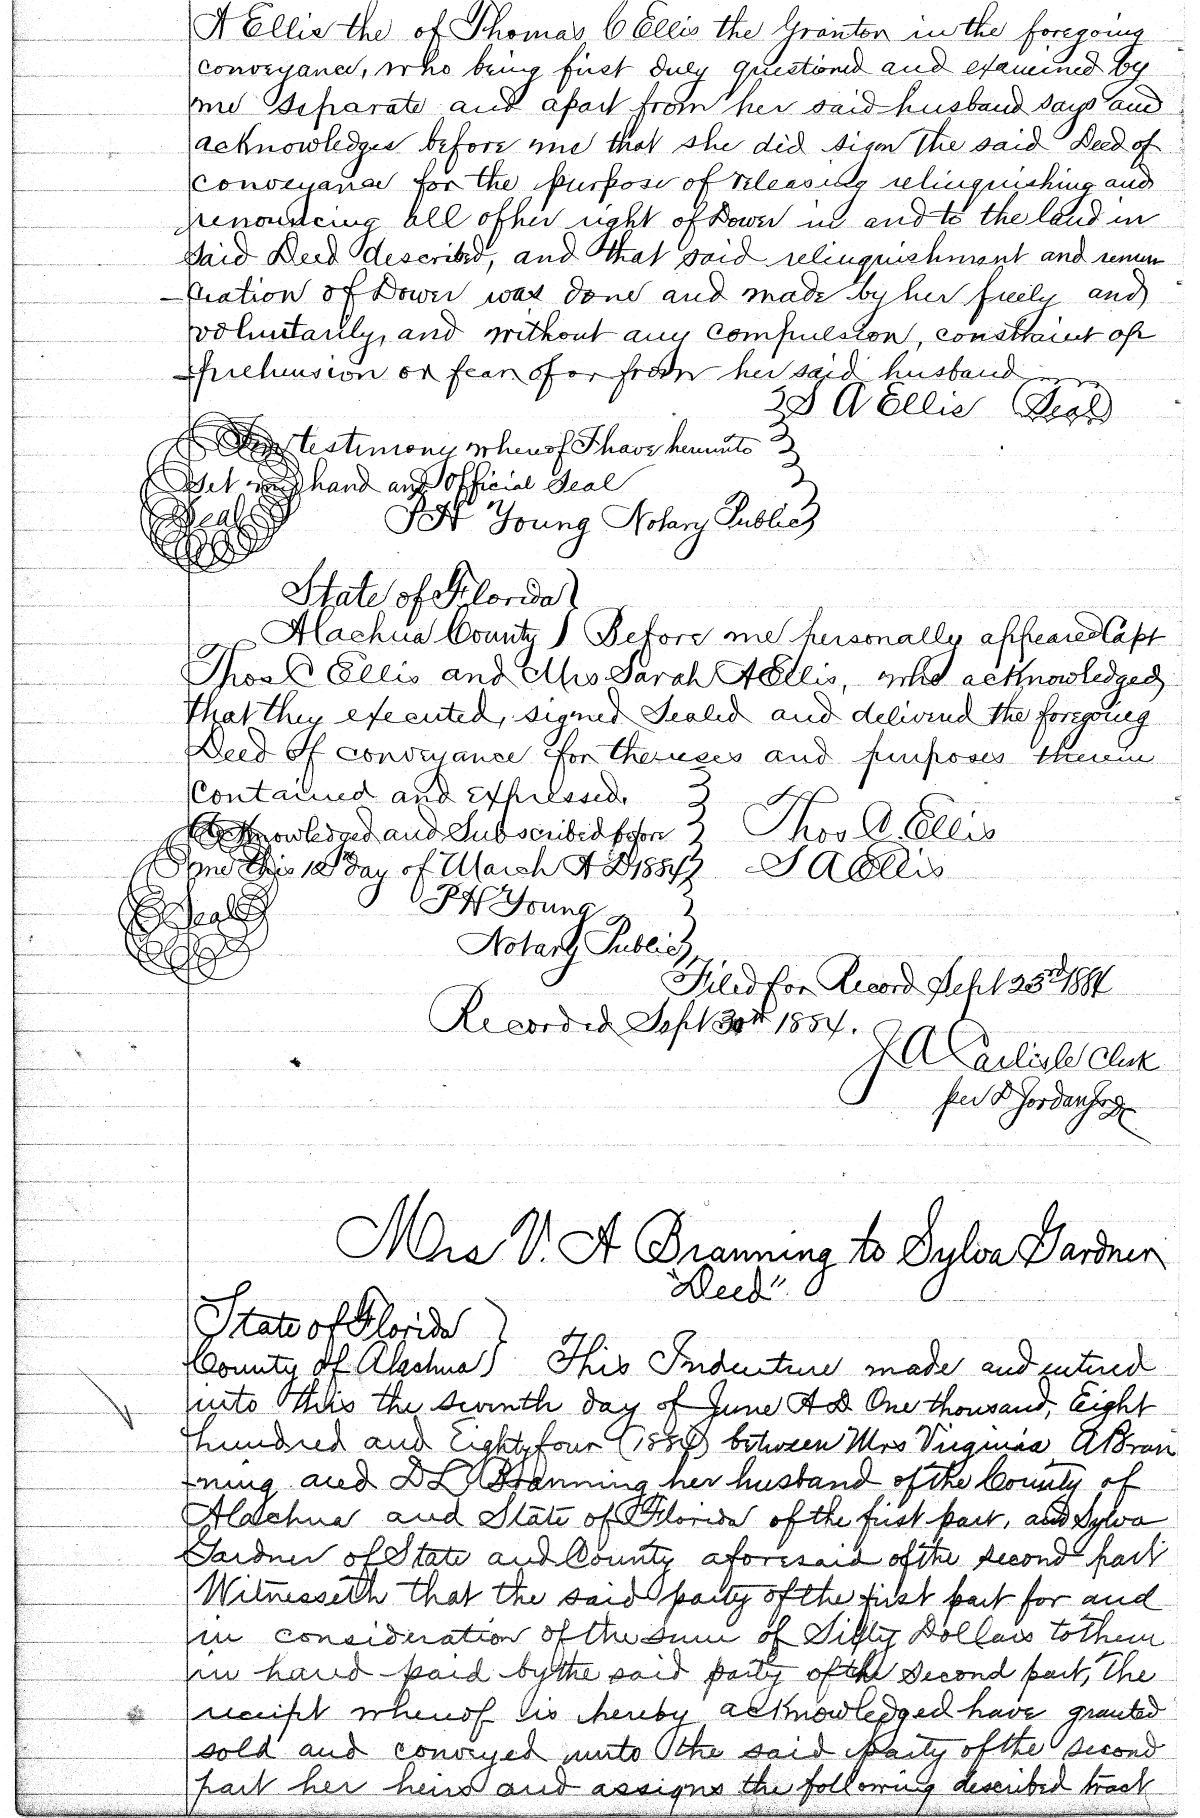 A Ellis the of Thomas C Ellis the Grantor in the foregoing
conveyance, who being first duly questioned and examined by
me separate and apart from her said husband says and
acknowledges before me that she did sign the said Deed of
conveyance for the purpose of releasing relinquishing and
renouncing all of her right of Dower in and to the land in
said Deed described, and that said relinquishment and renun
-ciation of Dower was done and made by her freely and
voluntarily, and without any compulsion, constraint ap
-prehension or fear of or from her said husband
S A Ellis (Seal)
In testimony whereof I have hereunto
set my hand and Official Seal
Seal
P H Young Notary Public
State of Florida
Alachua County Before me personally appeared Capt
Thos C Ellis and Mrs Sarah A Ellis, who acknowledged
that they executed, signed Sealed and delivered the foregoing
Deed of conveyance for the uses and purposes therein
contained and expressed.
Acknowledged and Subscribed before
Thos C. Ellis
me this 12th day of March A D 1884
S A Ellis
P H Young
Seal
Notary Public
Filed for Record Sept 23rd 1884
Recorded Sept 30th 1884.
J A Carlisle Clerk
per D Jordan
Mrs V. A Branning to Sylva Gardner
"Deed"
State of Florida
County of Alachua This Indenture made and entered
into this the seventh day of June A D One thousand, Eight
hundred and Eighty four (1884) between Mrs Virginia A Bran
-ning and D L Branning her husband of the County of
Alachua and State of Florida of the first part, and Sylva
Gardner of State and County aforesaid of the second part
Witnesseth that the said party of the first part for and
in consideration of the sum of Dollars to them
in hand paid by the said party of the second part, the
receipt whereof is hereby acknowledged have granted
sold and conveyed unto the said party of the second
part her heirs and assigns the following described tract